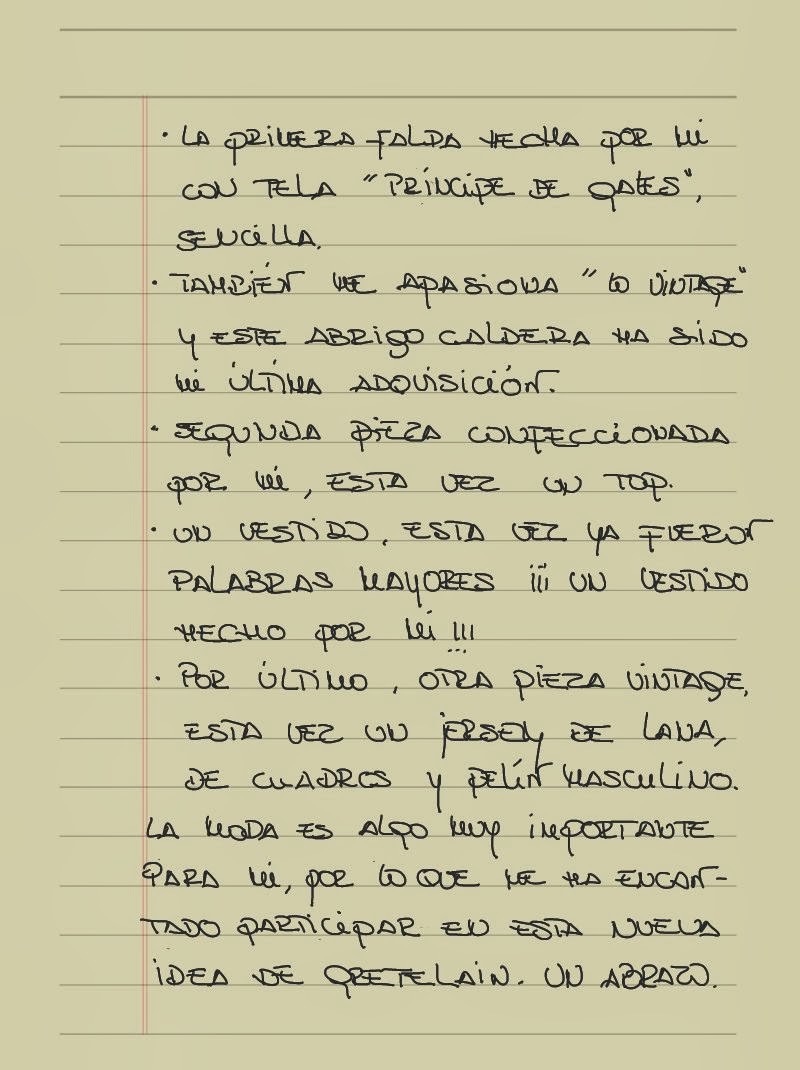 · LA PRIMERA FALDA HECHA POR MÍ
CON TELA "PRÍNCIPE DE GALES",
SENCILLA.
· TAMBIÉN ME APASIONA "LO VINTAGE"
Y ESTE ABRIGO CALDERA HA SIDO
MI ÚLTIMA ADQUISICIÓN.
· SEGUNDA PIEZA CONFECCIONADA
POR MÍ, ESTA VEZ UN TOP.
· UN VESTIDO, ESTA VEZ YA FUERON
PALABRAS MAYORES ¡¡¡ UN VESTIDO
HECHO POR MÍ !!!
· POR ÚLTIMO, OTRA PIEZA VINTAGE,
ESTA VEZ UN JERSEY DE LANA,
DE CUADROS Y PELÍN MASCULINO.
LA MODA ES ALGO MUY IMPORTANTE
PARA MÍ, POR LO QUE ME HA ENCAN-
TADO PARTICIPAR EN ESTA NUEVA
IDEA DE GRETELAIN. UN ABRAZO.